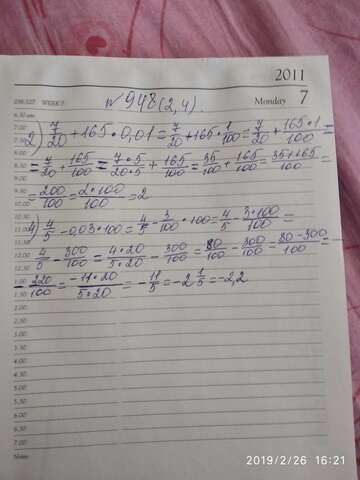 2011
238-327 WEEK 7
Monday 7
№ 948(2,4).
6.30 am
7.00
7.30
2) 7/20 + 165 • 0,01 = 7/20 + 165 • 1/100 = 7/20 + 165•1/100 =
8.00
8.30
= 7/20 + 165/100 = 7•5/20•5 + 165/100 = 35/100 + 165/100 = 35+165/100 =
9.00
9.30
= 200/100 = 2•100/100 = 2
10.00
10.30
11.00
4) 4/5 - 0,03•100 = 4/5 - 3/100 • 100 = 4/5 - 3•100/100 =
11.30
12.00
4/5 - 300/100 = 4•20/5•20 - 300/100 = 80/100 - 300/100 = 80-300/100 =
12.30
1.00
- 220/100 = -11•20/5•20 = - 11/5 = -2 1/5 = -2,2
1.30
2.00
2.30
3.00
3.30
4.00
4.30
5.00
5.30
6.00
6.30
7.00
Notes
2019/2/26 16:21